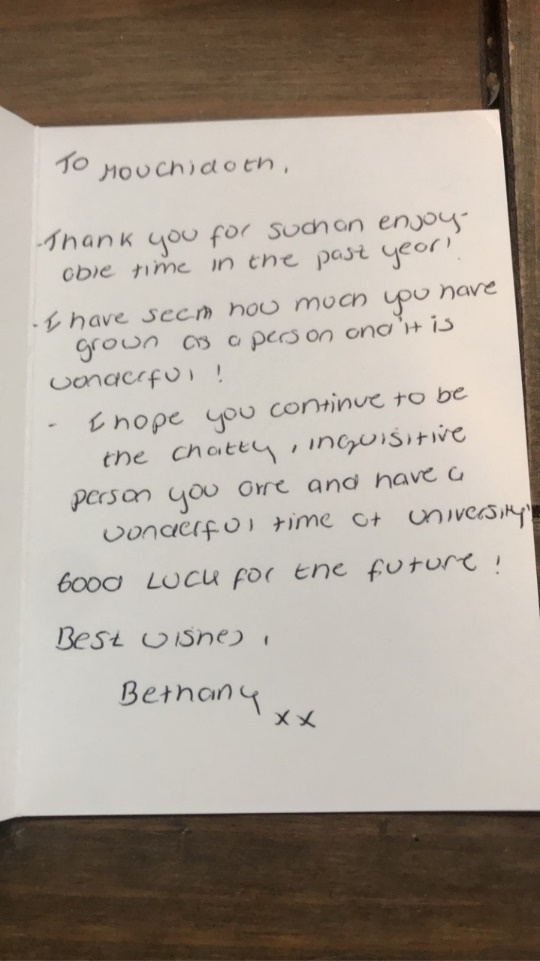 To Mouchidath,
-Thank you for such an enjoy-
able time in the past year!
- I have seem how much you have
grown as a person and it is
wonderful!
- I hope you continue to be
the chatty, inquisitive
person you are and have a
wonderful time at university
Good Luck for the future!
Best wishes,
Bethany
xx